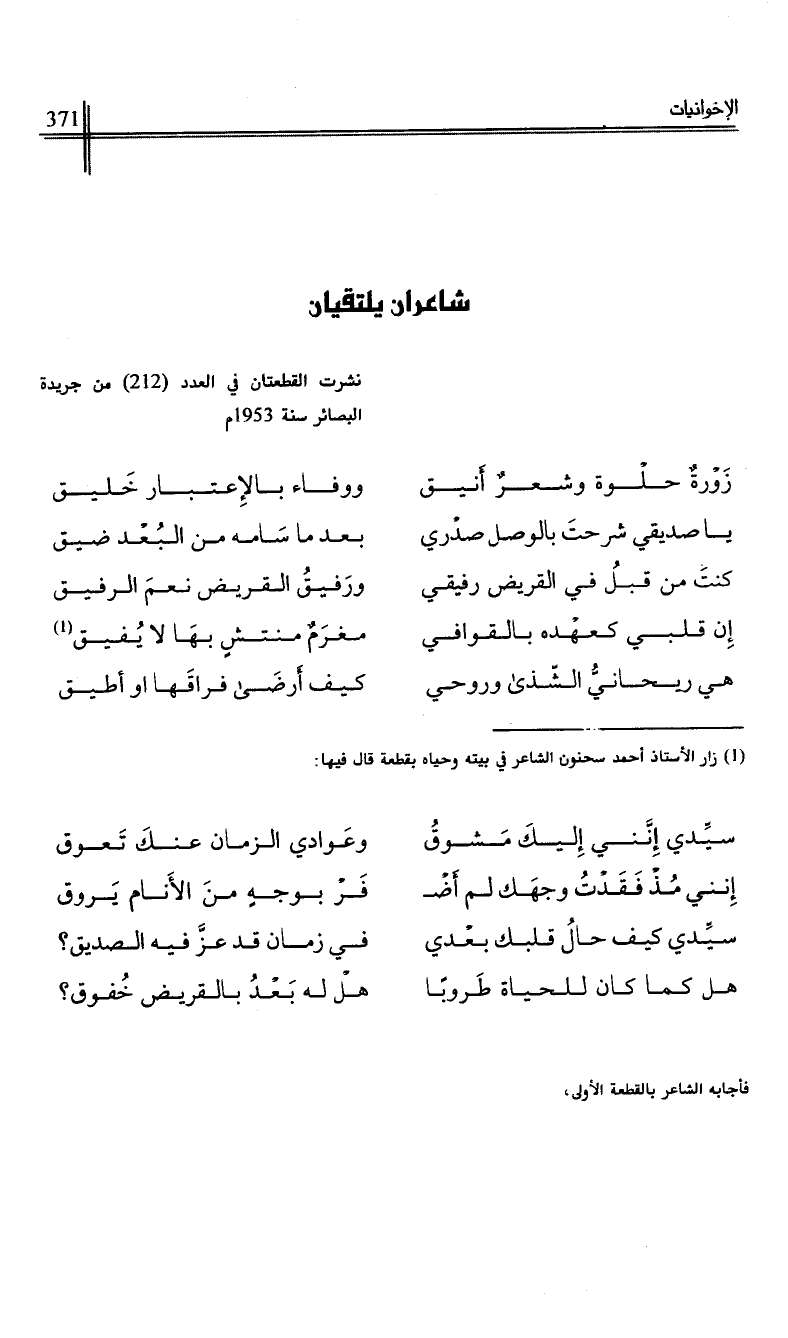 الإخوانيات
371
شاعران يلتقيان
نشرت القطعتان في العدد (212) من جريدة
البصائر سنة 1953م
زَوْرةٌ حلْوة وشعرٌ أَنيق ووفاء بالإعتبار خَليق
يا صديقي شرحتَ بالوصل صدْري بعد ما سَامه من البُعْد ضيق
كنتَ من قبلُ في القريض رفيقي ورَفيقُ القريض نعمَ الرفيق
إن قلبي كعهْده بالقوافي مغرَمٌ منتشٍ بهَا لا يُفيق(1)
هي ريحانيُّ الشّذىٰ وروحي كيف أَرضَىٰ فراقَها او أطيق
(1) زار الأستاذ أحمد سحنون الشاعر في بيته وحياه بقطعة قال فيها:
سيِّدي إنَّني إليكَ مَشوقُ وعَوادي الزمان عنكَ تَعوق
إنني مُذْ فَقَدْتُ وجهَك لم أَضْـ فَرْ بوجهٍ منَ الأَنام يَروق
سيِّدي كيف حالُ قلبك بعْدي في زمان قد عزَّ فيه الصديق؟
هل كما كان للحياة طَروبًا هلْ له بَعْدُ بالقريض خُفوق؟
فأجابه الشاعر بالقطعة الأولى،